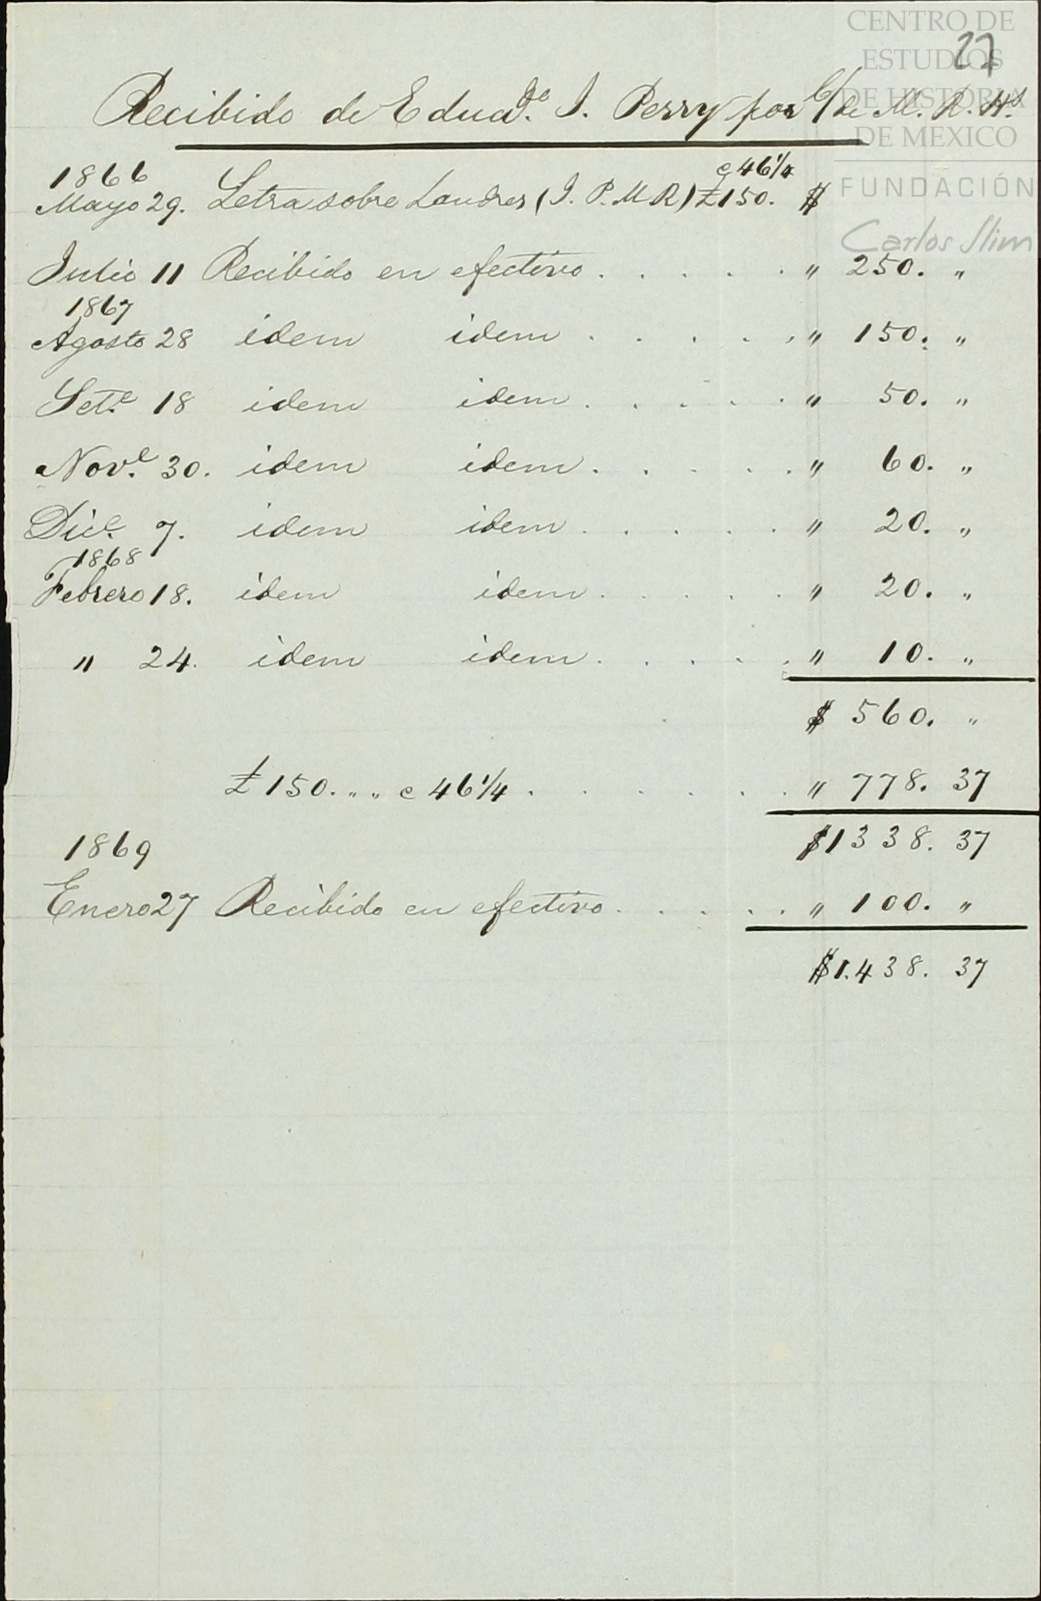 CENTRO DE
ESTUDIOS
DE HISTORIA
DE MEXICO
FUNDACIÓN
Carlos Slim
27
Recibido de Eduardo J. Perry por C/ de M. R. Hs.
1866
c 46 1/4
Mayo 29. Letra sobre Londres (J. P. M R) £150. $
Julio 11 Recibido en efectivo . . . . . " 250. "
1867
Agosto 28 idem idem . . . . . " 150. "
Sete. 18 idem idem . . . . . " 50. "
Nove. 30. idem idem . . . . . " 60. "
Dice. 7. idem idem . . . . . " 20. "
1868
Febrero 18. idem idem . . . . . " 20. "
" 24. idem idem . . . . . " 10. "
$ 560. "
£ 150. " " c 46 1/4 . . . . . " 778. 37
$1338. 37
1869
Enero 27 Recibido en efectivo . . . . . " 100. "
$1.438. 37